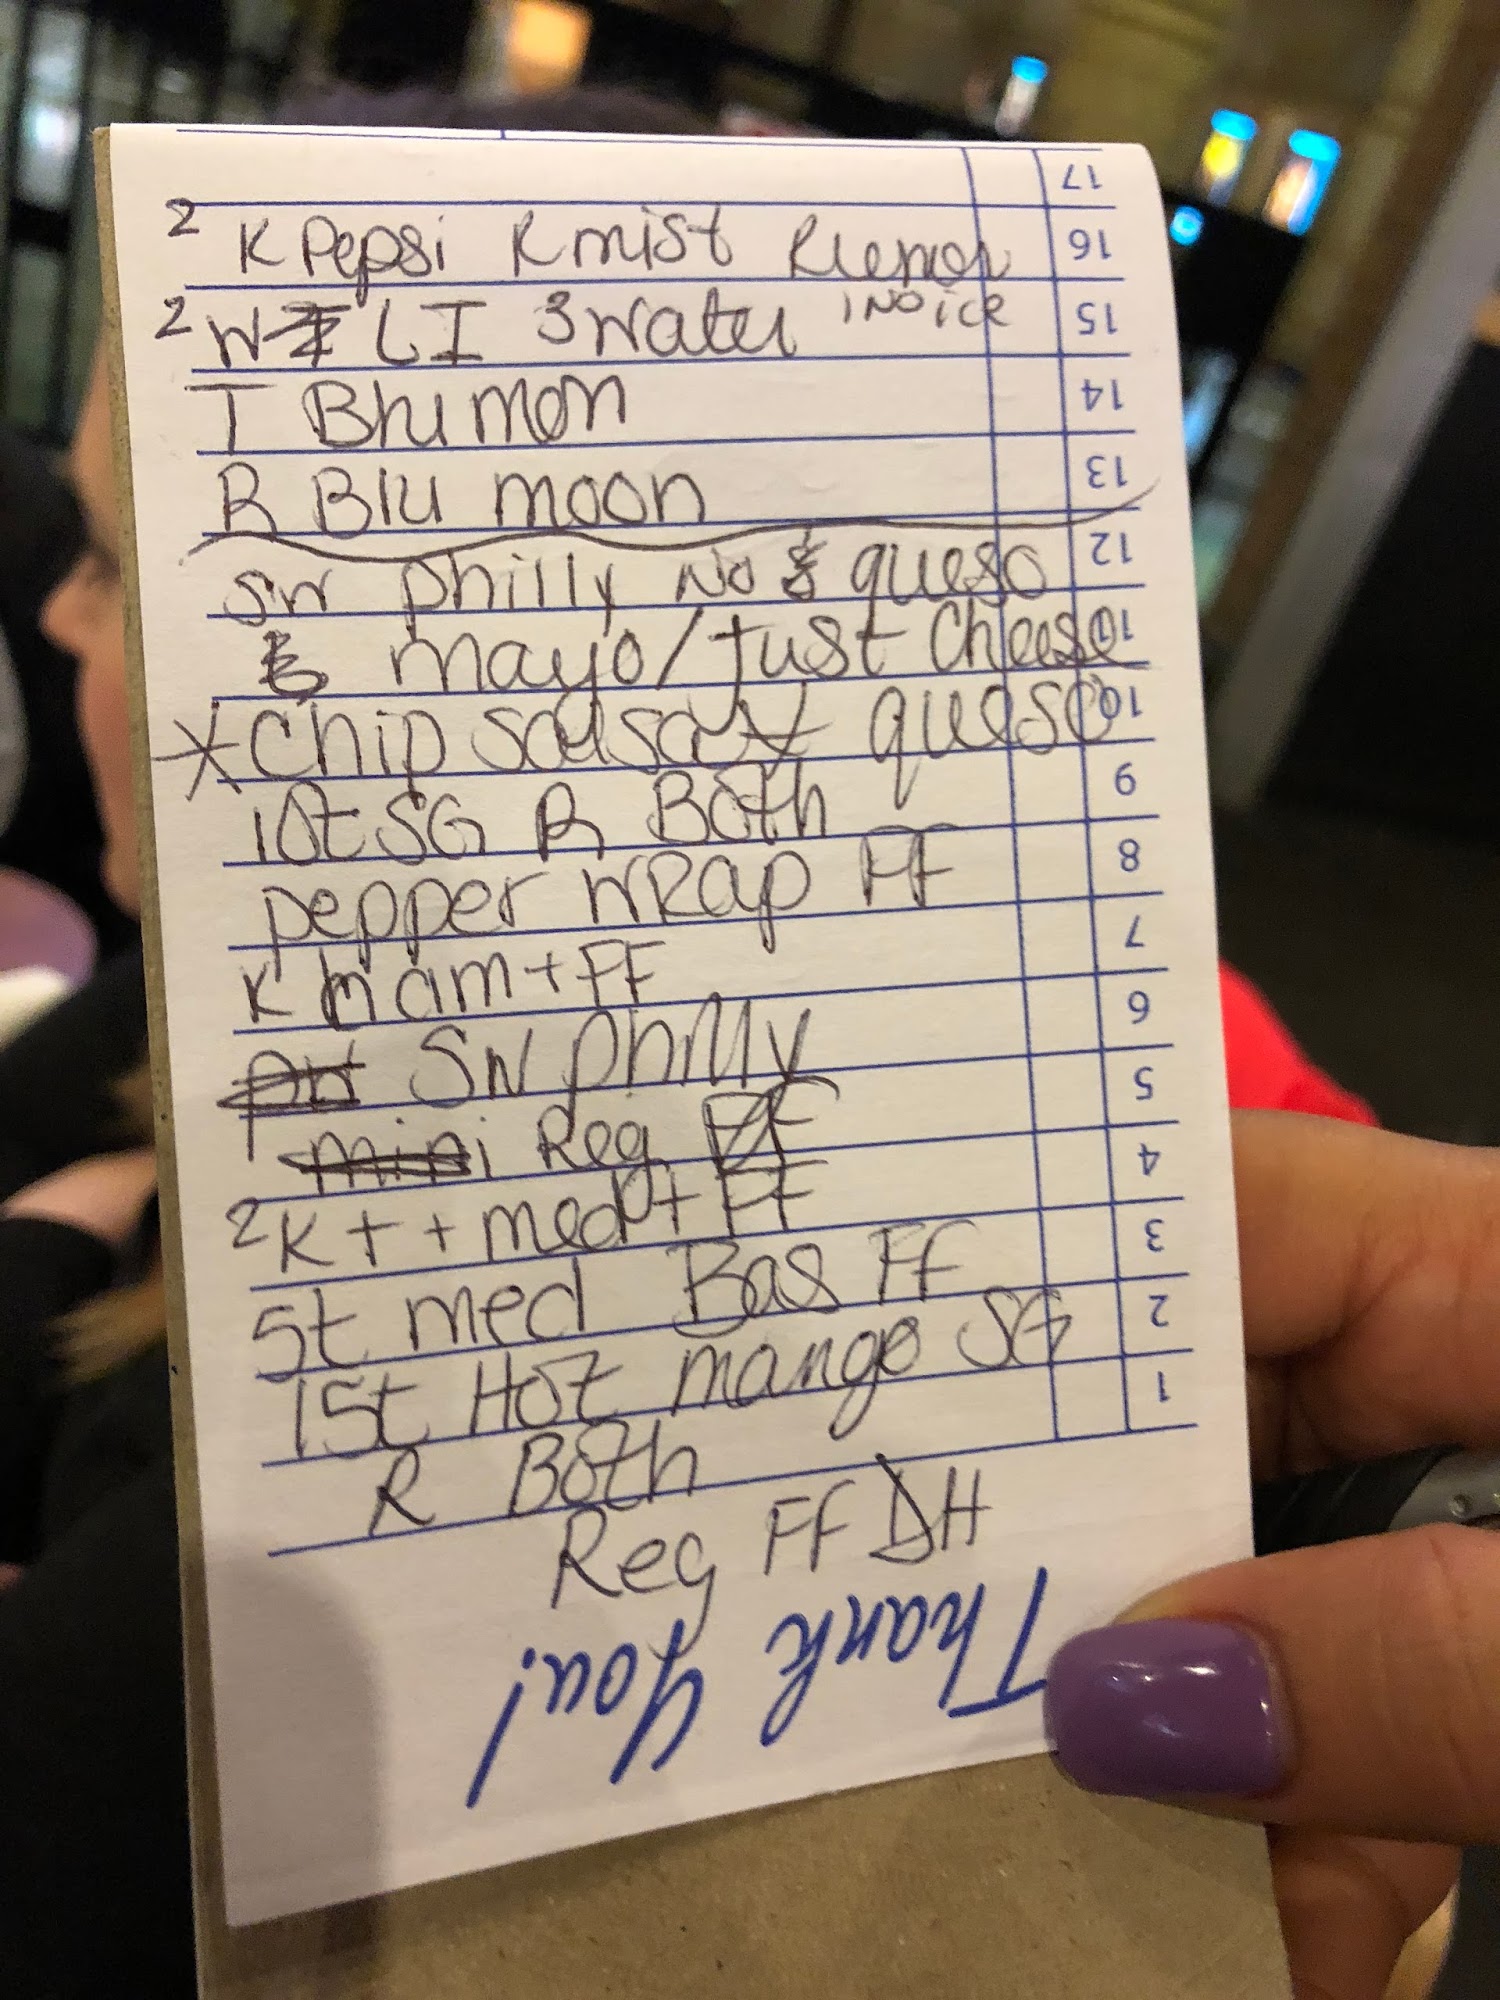 17
2 K Pepsi K mist K lemon 16
2 W LI 3 Water 1 NO ice 15
T Blu mon 14
R Blu moon 13
SW philly NO queso 12
mayo/Just Cheese 11
* Chip salsa + queso 10
10t SG R Both 9
pepper WRap FF 8
K ham + FF 7
SW philly 6
Reg FF 5
2 K + + med + FF 4
5t med Bas FF 3
15t Hot mango SG 2
R Both 1
Reg FF DH
Thank You!